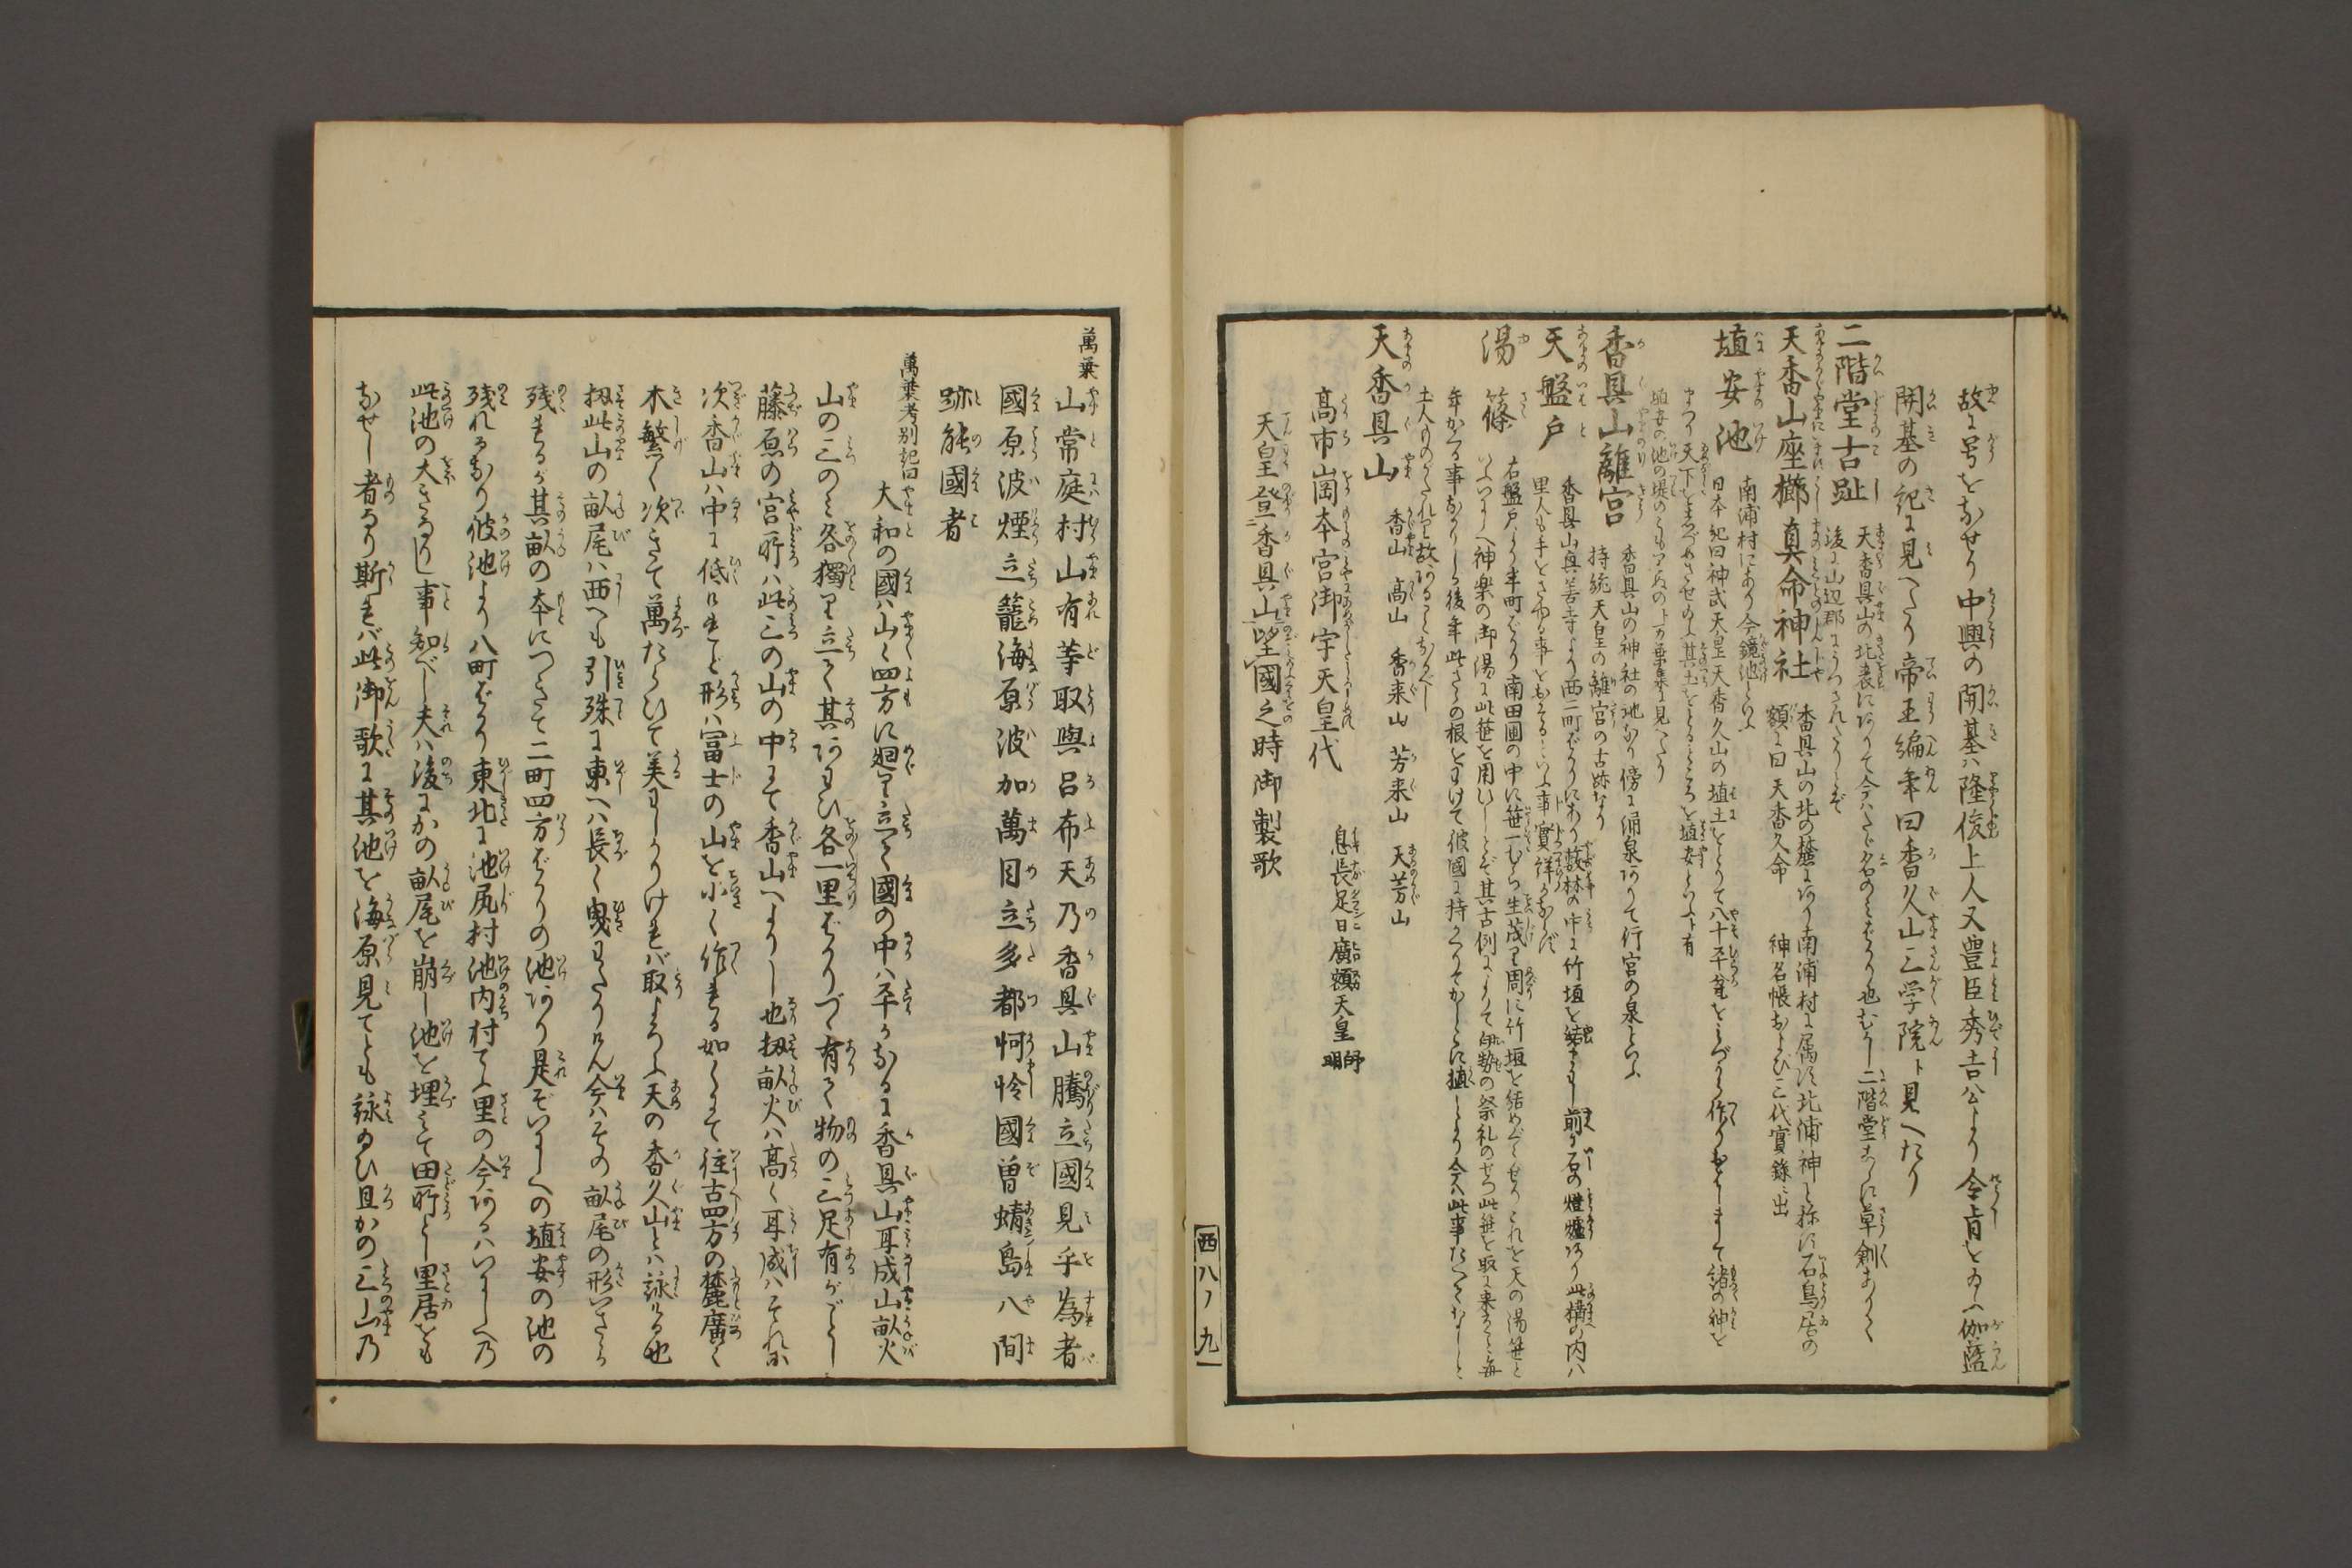 故に号をなせり中興の開基ハ隆俊上人又豊臣秀吉公より令旨をゐふ伽藍
開基の記に見へたり帝王編年曰香久山三学院ト見へたり
二階堂古趾
天香具山の北表にありて今ハたゞ名のミばかり也むかし二階堂こゝに草創ありて
後に山辺郡にうつされたりとぞ
天香山座櫛真命神社
香具山の北の麓にあり南浦村に属す北浦神と称す石鳥居の
額に曰天香久命 神名帳および三代實錄ニ出
埴安池
南浦村にあり今鏡池といふ
日本紀曰神武天皇天香久山の埴土をとりて八十平瓮をミづから作りましまして諸の神を
まつり天下をしづめさせ給ふ其土をとるところを埴安といふト有
埴安の池の堤の
香具山離宮
香具山の神社の地なり傍に涌泉ありて行宮の泉といふ
持統天皇の離宮の古跡なり
天盤戸
香具山興善寺より西二町ばかりにあり藪林の中に竹垣を結まハし前に石の燈爐あり此構の内ハ
里人も手をさゆる事をおそるといふ事實詳ならず
湯篠
右盤戸より半町ばかり南田圃の中に笹一むら生茂里周に竹垣を結めぐらせりこれを天の湯笹と
いふいにしへ神楽の御湯に此笹を用ひしとぞ其古例によりて伊勢の祭礼のせつ此笹を取に来ること毎
年かゝる事なりしに後年此さゝの根をわけて彼國に持かへりそかしこに植しより今ハ此事たへてなしと
土人ものがたれり故あることなるべし
天香具山
香山 高山 香来山 芳来山 天芳山
高市崗本宮御宇天皇代
息長足日廣額天皇 舒明
天皇登香具山望國之時御製歌
西八ノ九
萬葉
山常庭村山有等取與呂布天乃香具山騰立國見乎為者
國原波煙立籠海原波加萬目立多都怜㤞國曽蜻島八間
跡能國者
萬葉考別記曰
大和の國ハ山〻四方に廻里立て國の中ハ平かなるに香具山耳成山畝火
山の三のミ各獨り立て其あはひ各一里ばかりづゝ有て物の三足有がごとし
藤原の宮所ハ此三の山の中にて香山へよりし也扨畝火ハ高く耳成ハそれに
次香山ハ中に低けれど形ハ冨士の山を小く作れる如くにて往古四方の麓廣く
木繁く次きて萬たらひて美ハしかりけれバ取よろふ天の香久山とハ詠る也
扨此山の畝尾ハ西へも引殊に東へハ長く曳わたりけん今ハその畝尾の形いさゝか
残れるが其畝の本につきて二町四方ばかりの池あり是ぞいにしへの埴安の池の
残れるなり彼池より八町ばかり東北に池尻村池内村てふ里の今あるハいにしへ乃
此池の大きなりし事知べし夫ハ後にかの畝尾を崩し池を埋ミて田所とし里居をも
なせし者なり斯れバ此御歌に其池を海原見てとも詠給ひ且かの三山乃